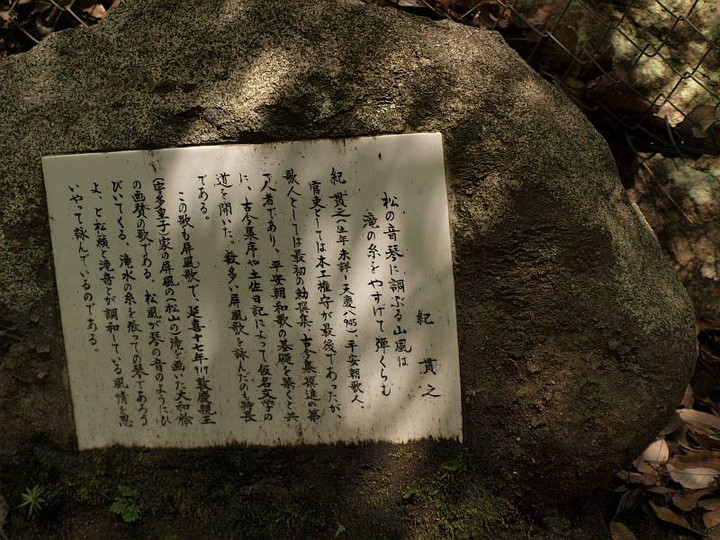 紀 貫之
松の音琴に調ぶる山風は
滝の糸をやすげて弾くらむ
紀 貫之(生年未詳〜天慶八945)、平安朝歌人。
官吏としては木工権守が最後であったが、
歌人としては最初の勅撰集、古今集撰進の第
一人者であり、平安朝和歌の基礎を築くと共
に、古今集序や土佐日記によって仮名文学の
道を開いた。数多い屏風歌を詠んだのも特長
である。
この歌も屏風歌で、延喜十七年917敦慶親王
(宇多皇子)家の屏風の(松山の滝を画いた大和絵
の画賛の歌である。松風が琴の音のようにひ
びいてくる、滝水の糸を張っての琴であろう
よ、と松籟と滝音とが調和している風情を思
いやって詠んでいるのである。